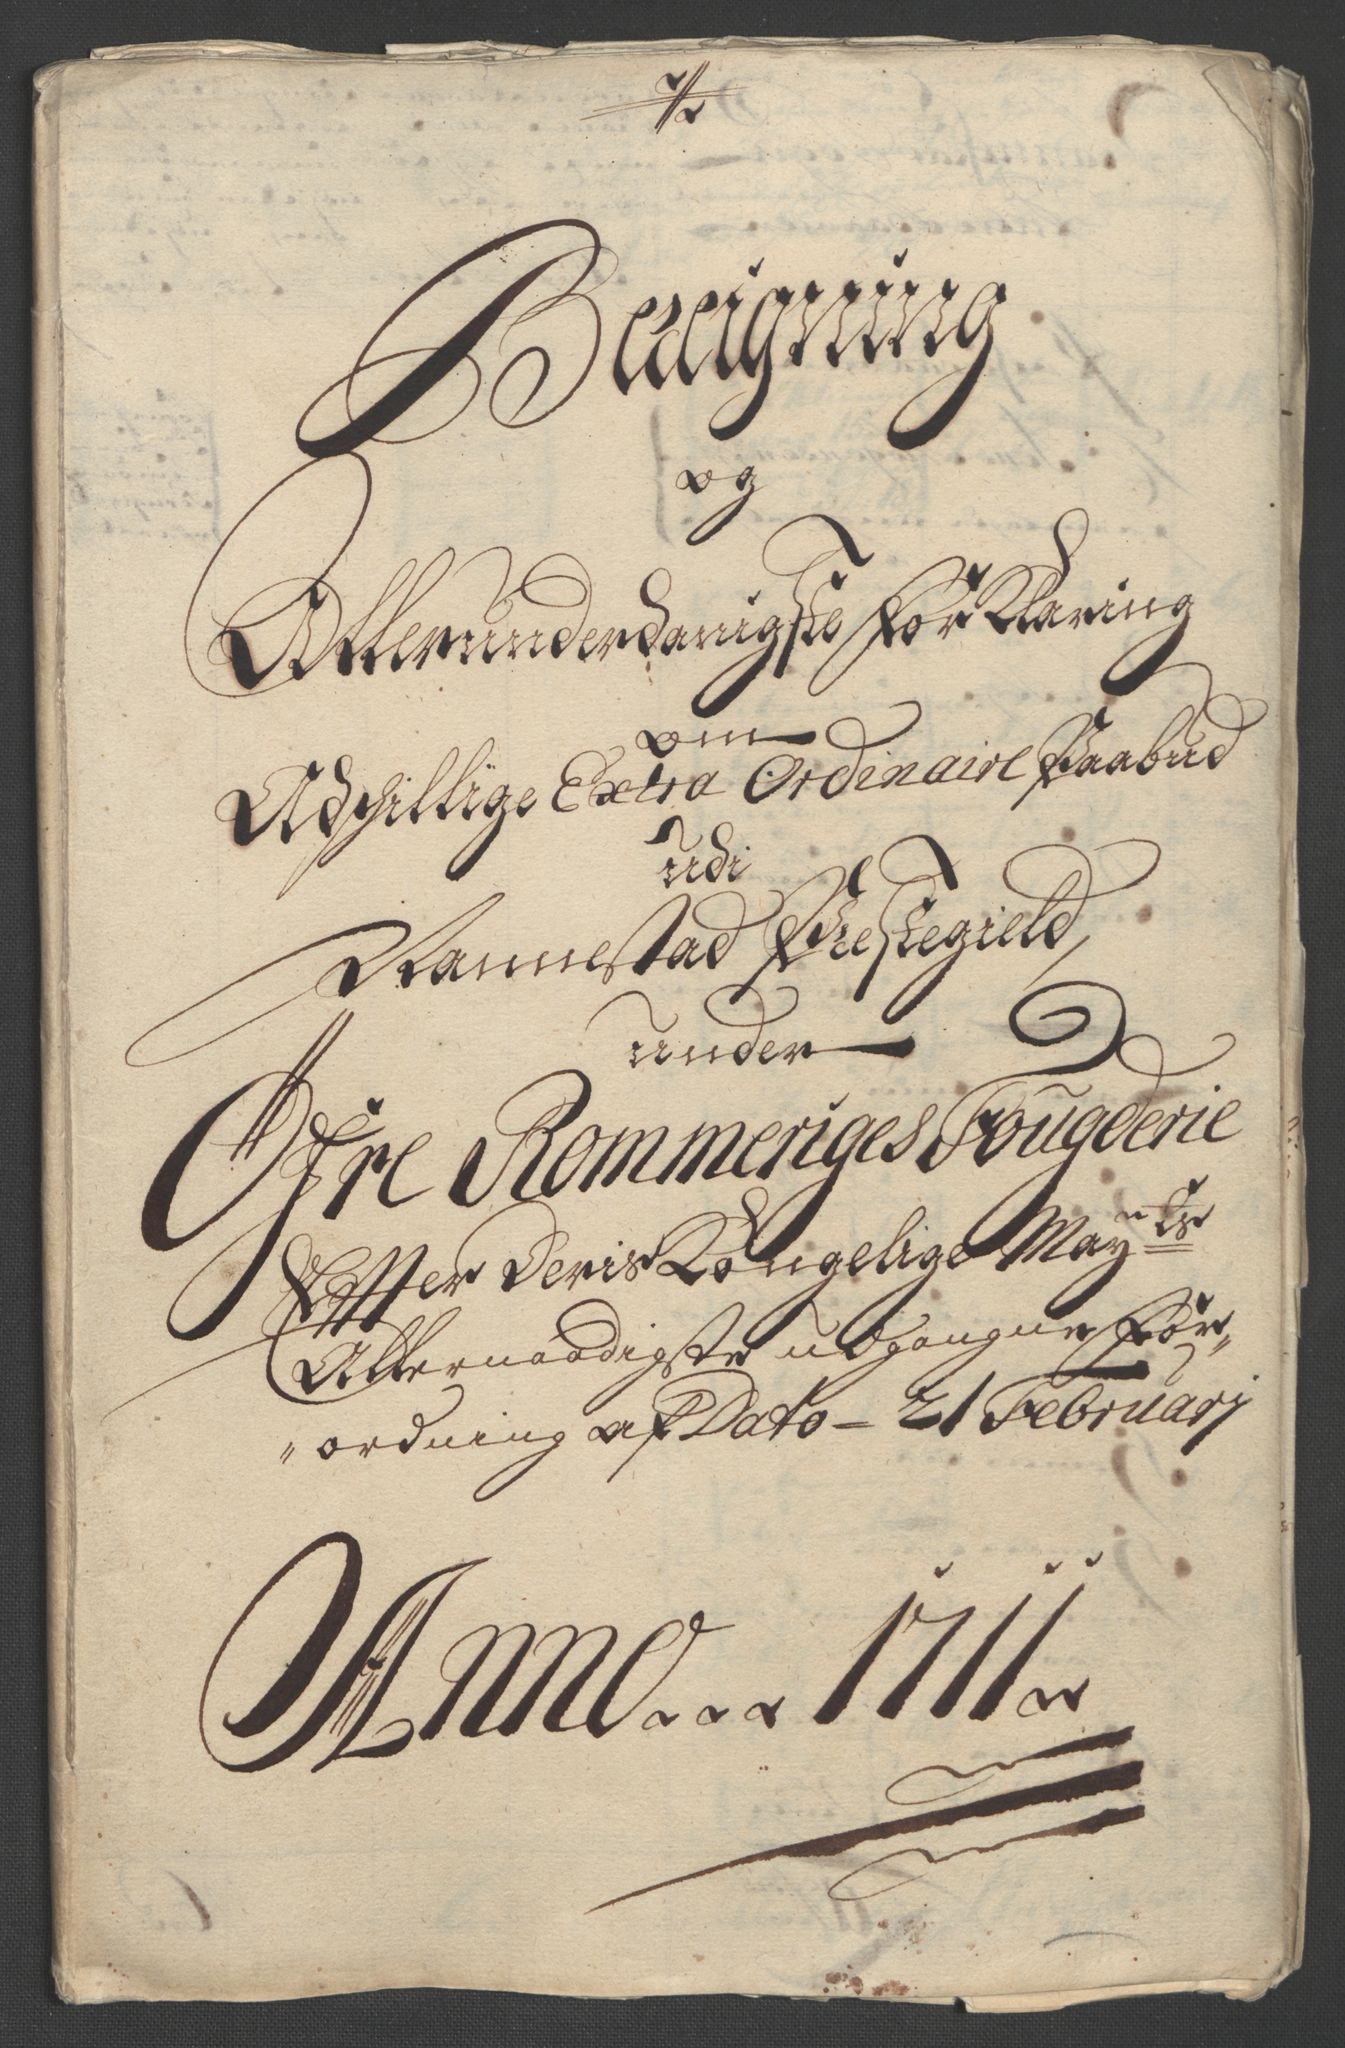 Beretigning
og
Allerunderdanigste Forklaring
om
Adschillige Extra Ordinaire Paabud
udi
Nannestad Præstegield
under
Øfre Rommeriges Fougderie
Effter Deris Kongelige May.ts
Allernaadigste udgangne For„
„ordning af Dato – 21 Februarj
Anno... 1711..